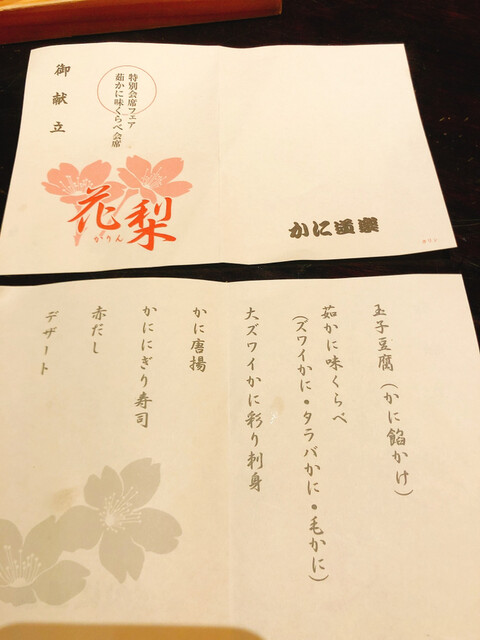 御献立
特別会席フェア
茹かに味くらべ会席
花梨
かりん
かに道楽
玉子豆腐(かに餡かけ)
茹かに味くらべ
(ズワイかに・タラバかに・毛かに)
大ズワイかに彩り刺身
かに唐揚
かににぎり寿司
赤だし
デザート